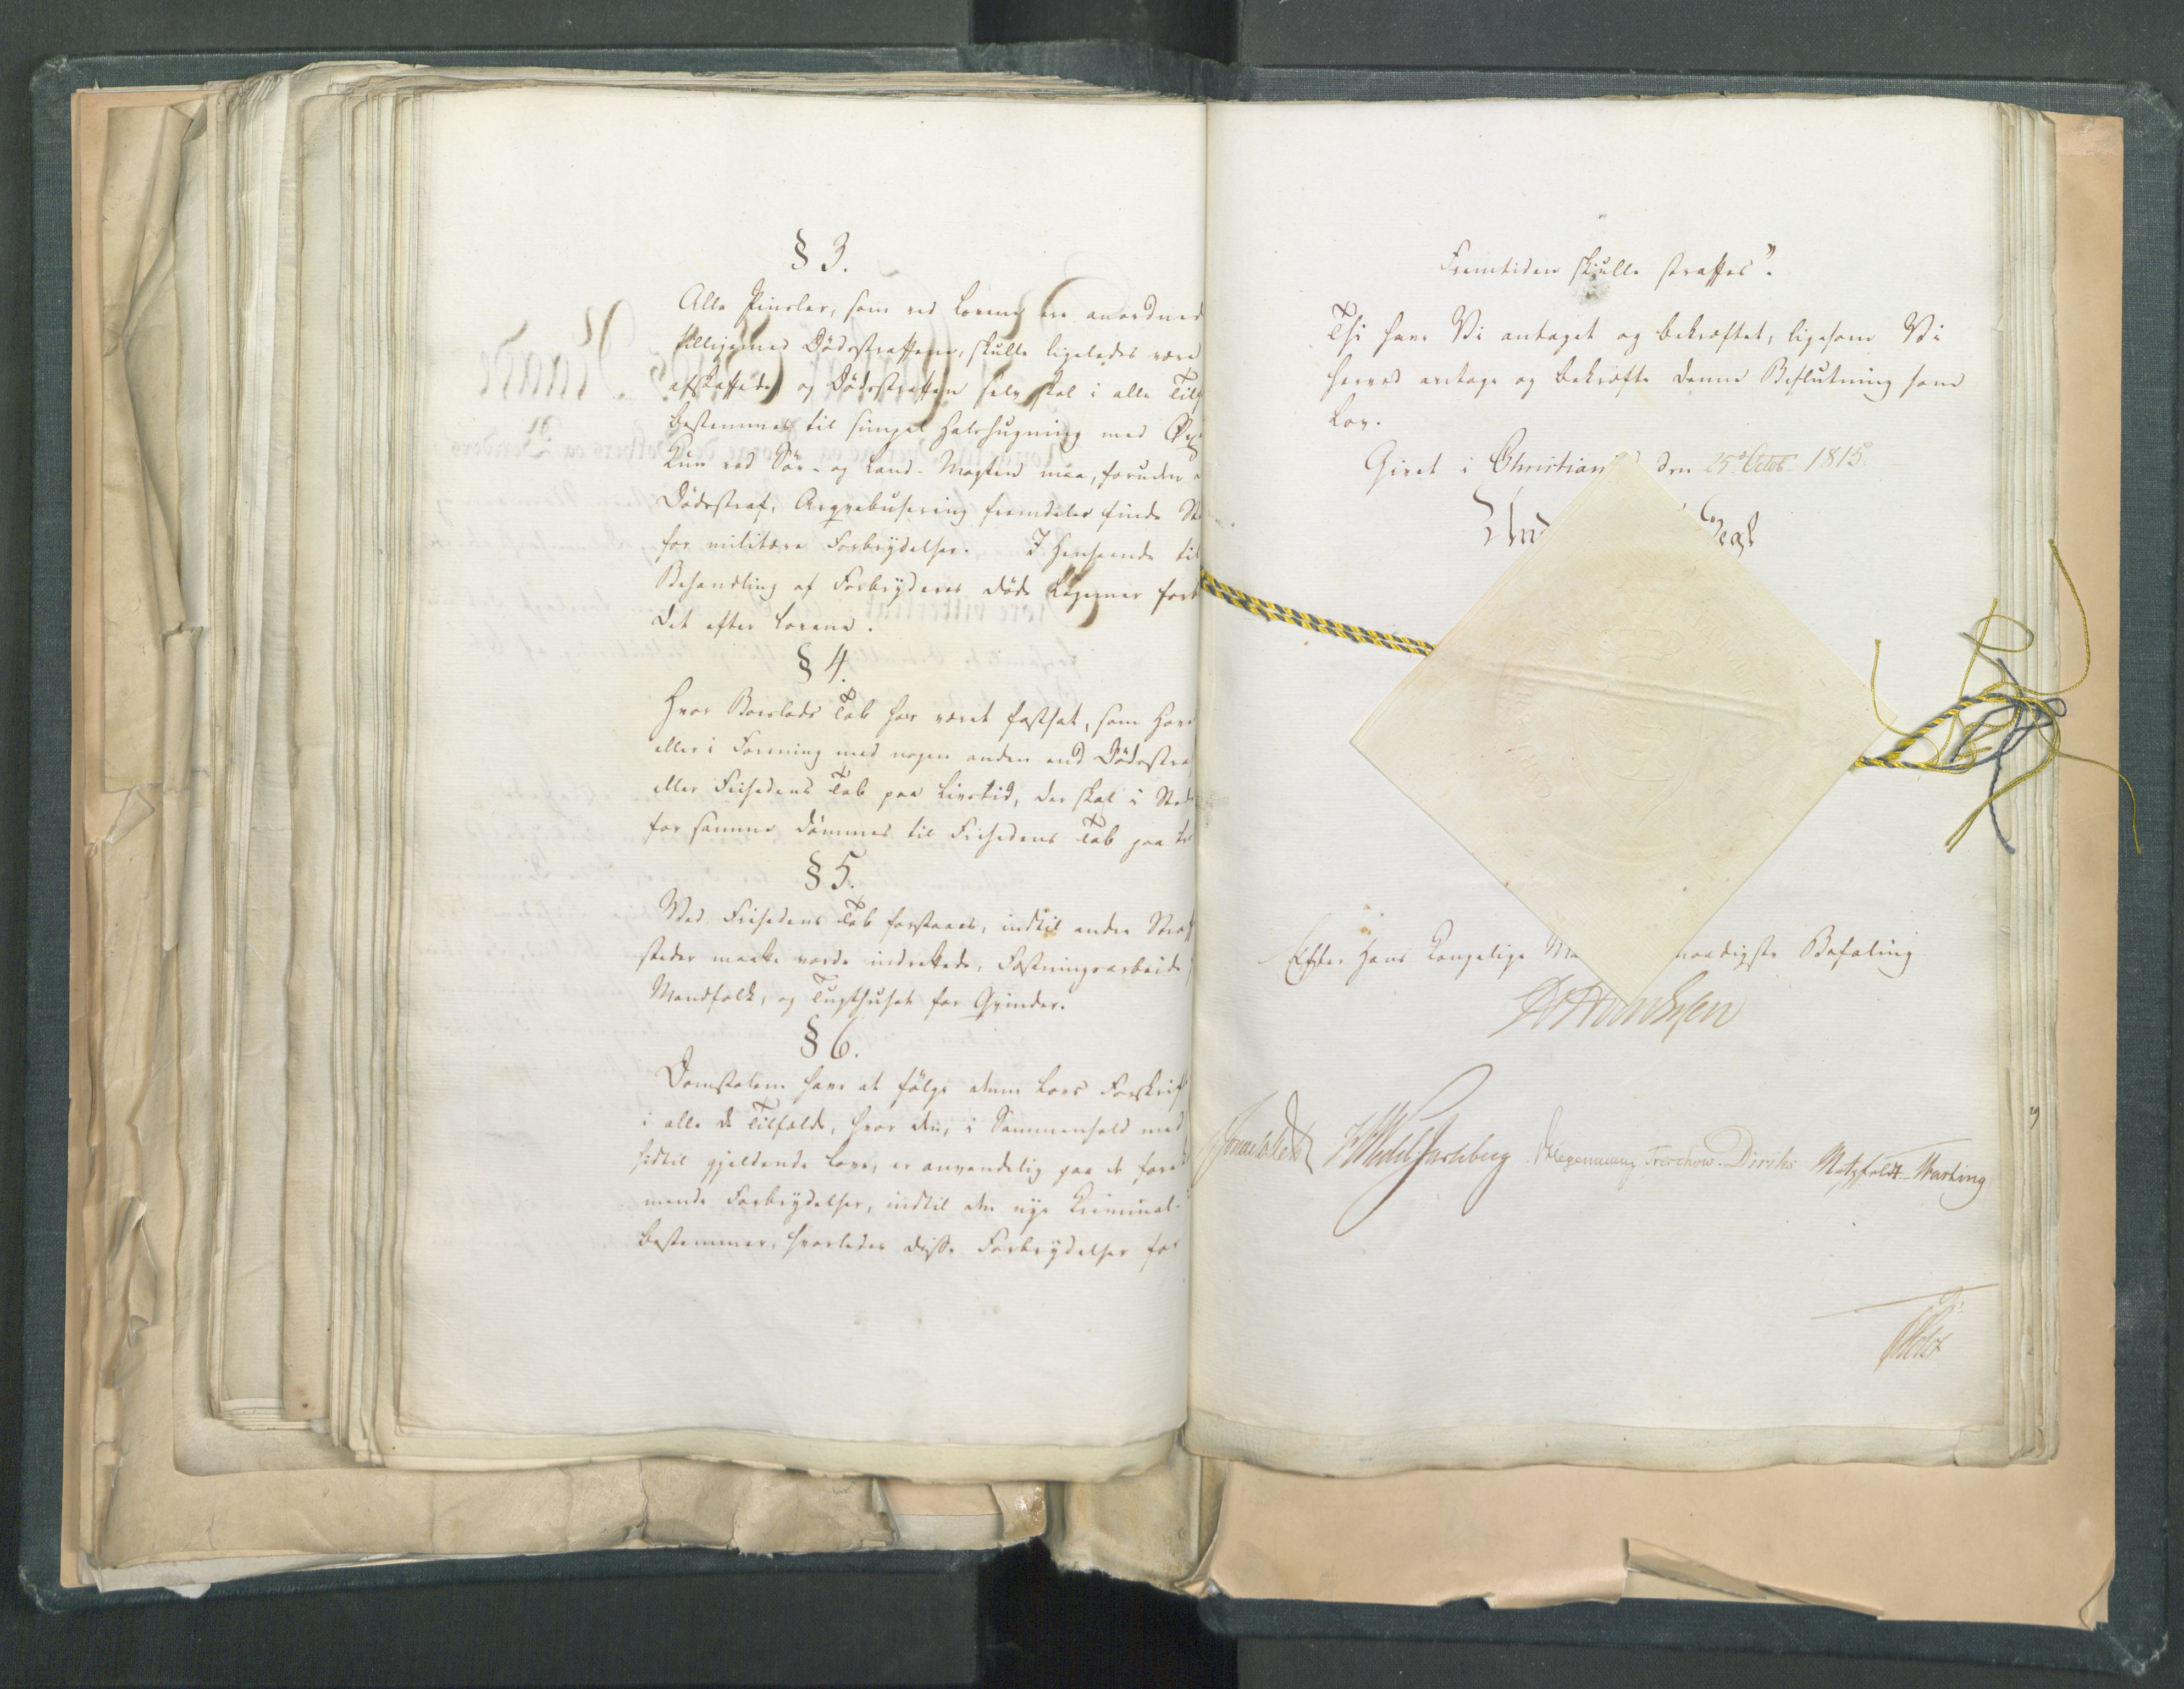 § 3.
Alle Pinsler, som ved Lovene ere anordned
tilligemed Dödsstraffene, skulle ligeledes være
afskaffede og Dödsstraffen selv skal i alle Tilf
bestemmes til simpel Halshugning med Öxe
Kun ved Söe- og Land-Magten maa, foruden
Dödsstraf, Arqvebusering fremdeles finde St
for militære Forbrydelser. I Henseende til
Behandling af Forbryderes döde Legemer for
det efter Lovene.
§ 4.
Hvor Boeslods Tab har været fastsat, som Hov
eller i Forening med nogen anden end Dödsstra
eller Frihedens Tab paa Livstid, der skal i Sted
for samme dömmes til Frihedens Tab paa
§ 5.
Ved Frihedens Tab forstaaes, indtil andre Straf
steder maatte vorde indrettede, Fæstningsarbeide
Mandfolk, og Tugthuset for Qvinder.
§ 6.
Domstolene have at fölge denne Lovs Forskrif
i alle de Tilfælde, hvor den, i Sammenhold med
hidtil gjeldende Love, er anvendelig paa de fore
mende Forbrydelser, indtil den nye Criminal-
bestemmer, hvorledes disse Forbrydelser for
Fremtiden skulle straffes".
Thi have Vi antaget og bekræftet, ligesom Vi
herved antage og bekræfte denne Beslutning som
Lov.
Givet i Christian den 25de Octob. 1815.
Und Segl
Efter Hans Kongelige Ma naadigste Befaling
Sommerhielm HWedel Jarlsberg Hegermann Treschow. Diriks Motzfeldt